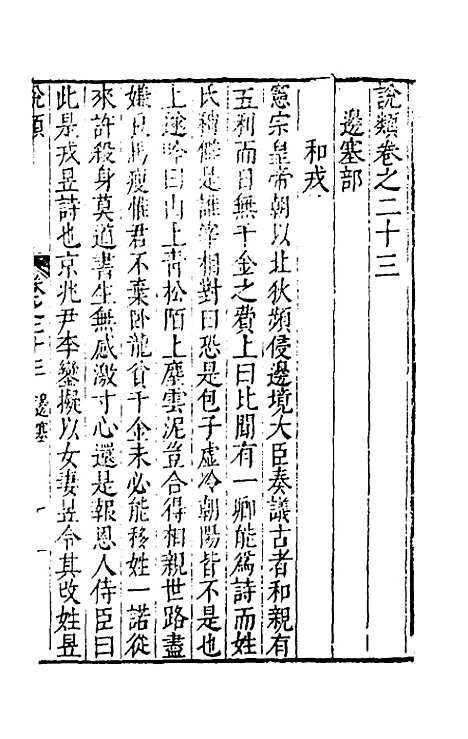 說類卷之二十三
邊塞部
和戎
憲宗皇帝朝以北狄頻侵邊境大臣奏議古者和親有
五利而日無千金之費上曰比聞有一卿能爲詩而姓
氏稍僻是誰宰相對曰恐是包子虛冷朝陽皆不是也
上遂吟曰山上青松陌上塵雲泥豈合得相親世路盡
嫌良馬瘦惟君不棄卧龍貧千金未必能移姓一諾從
來許殺身莫道書生無感激寸心還是報恩人侍臣曰
此是戎昱詩也京兆尹李鑾擬以女妻昱令其改姓昱
說類
卷之二十三 邊塞 一